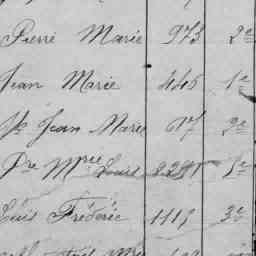 Pierre Marie 973 2e
Jean Marie 446 1e
Yv Jean Marie 617 2e
Pre Mrie Louis 1e
Luis Frédéric 1117 3e